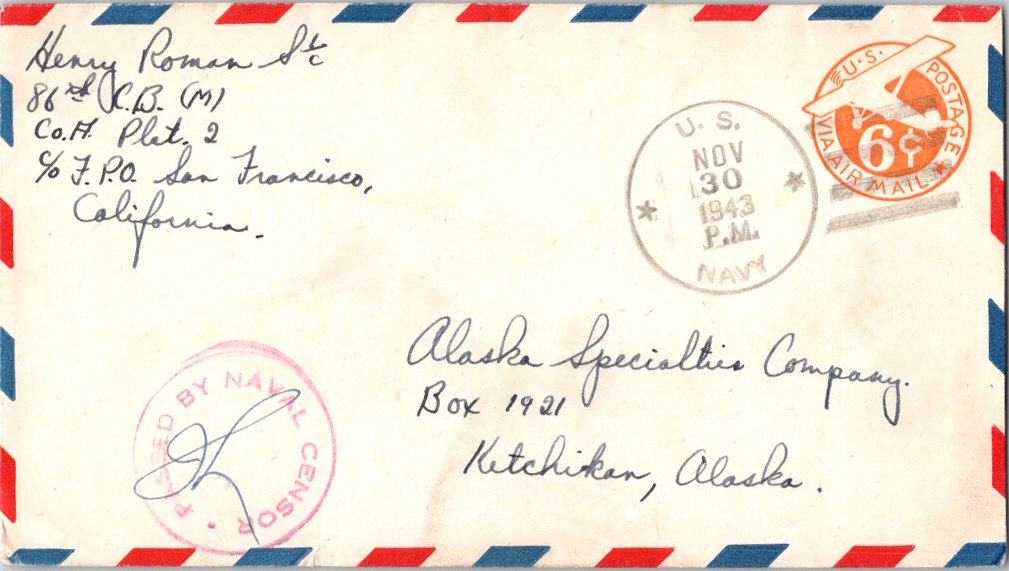 Henry Roman S 1/c
86th C.B. (M)
Co. A. Plat. 2
c/o F.P.O. San Francisco,
California.
U. S.
NOV
30
1943
P.M.
NAVY
U.S. POSTAGE
6¢
VIA AIR MAIL
Alaska Specialties Company.
Box 1921
Ketchikan, Alaska.
PASSED BY NAVAL CENSOR